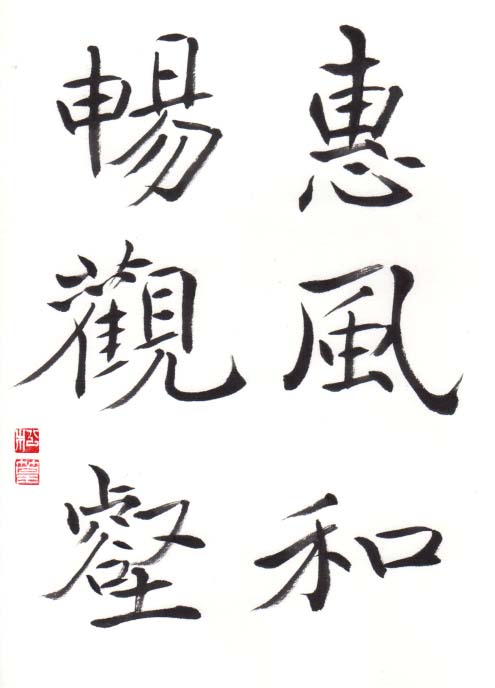 惠風和
暢觀壑